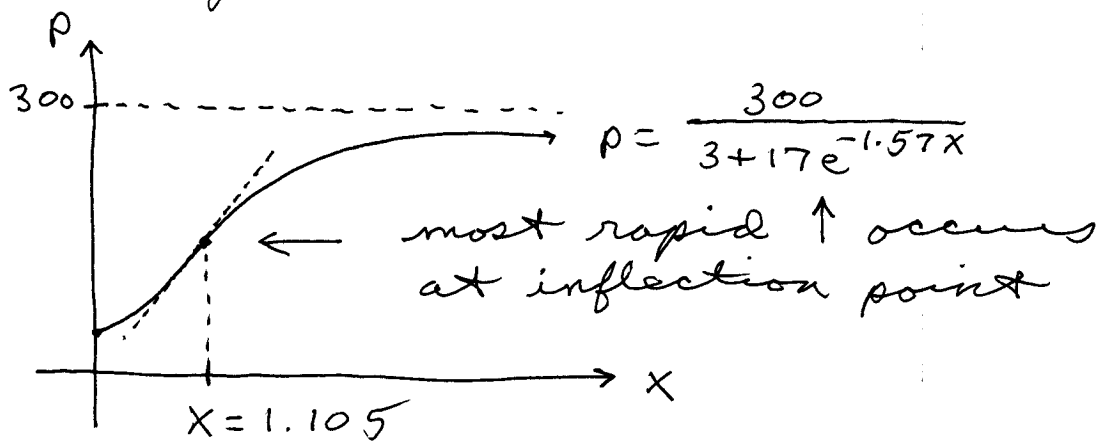 P
300
p = 300 / (3 + 17e^{-1.57x})
most rapid ↑ occurs
at inflection point
X
X = 1.105